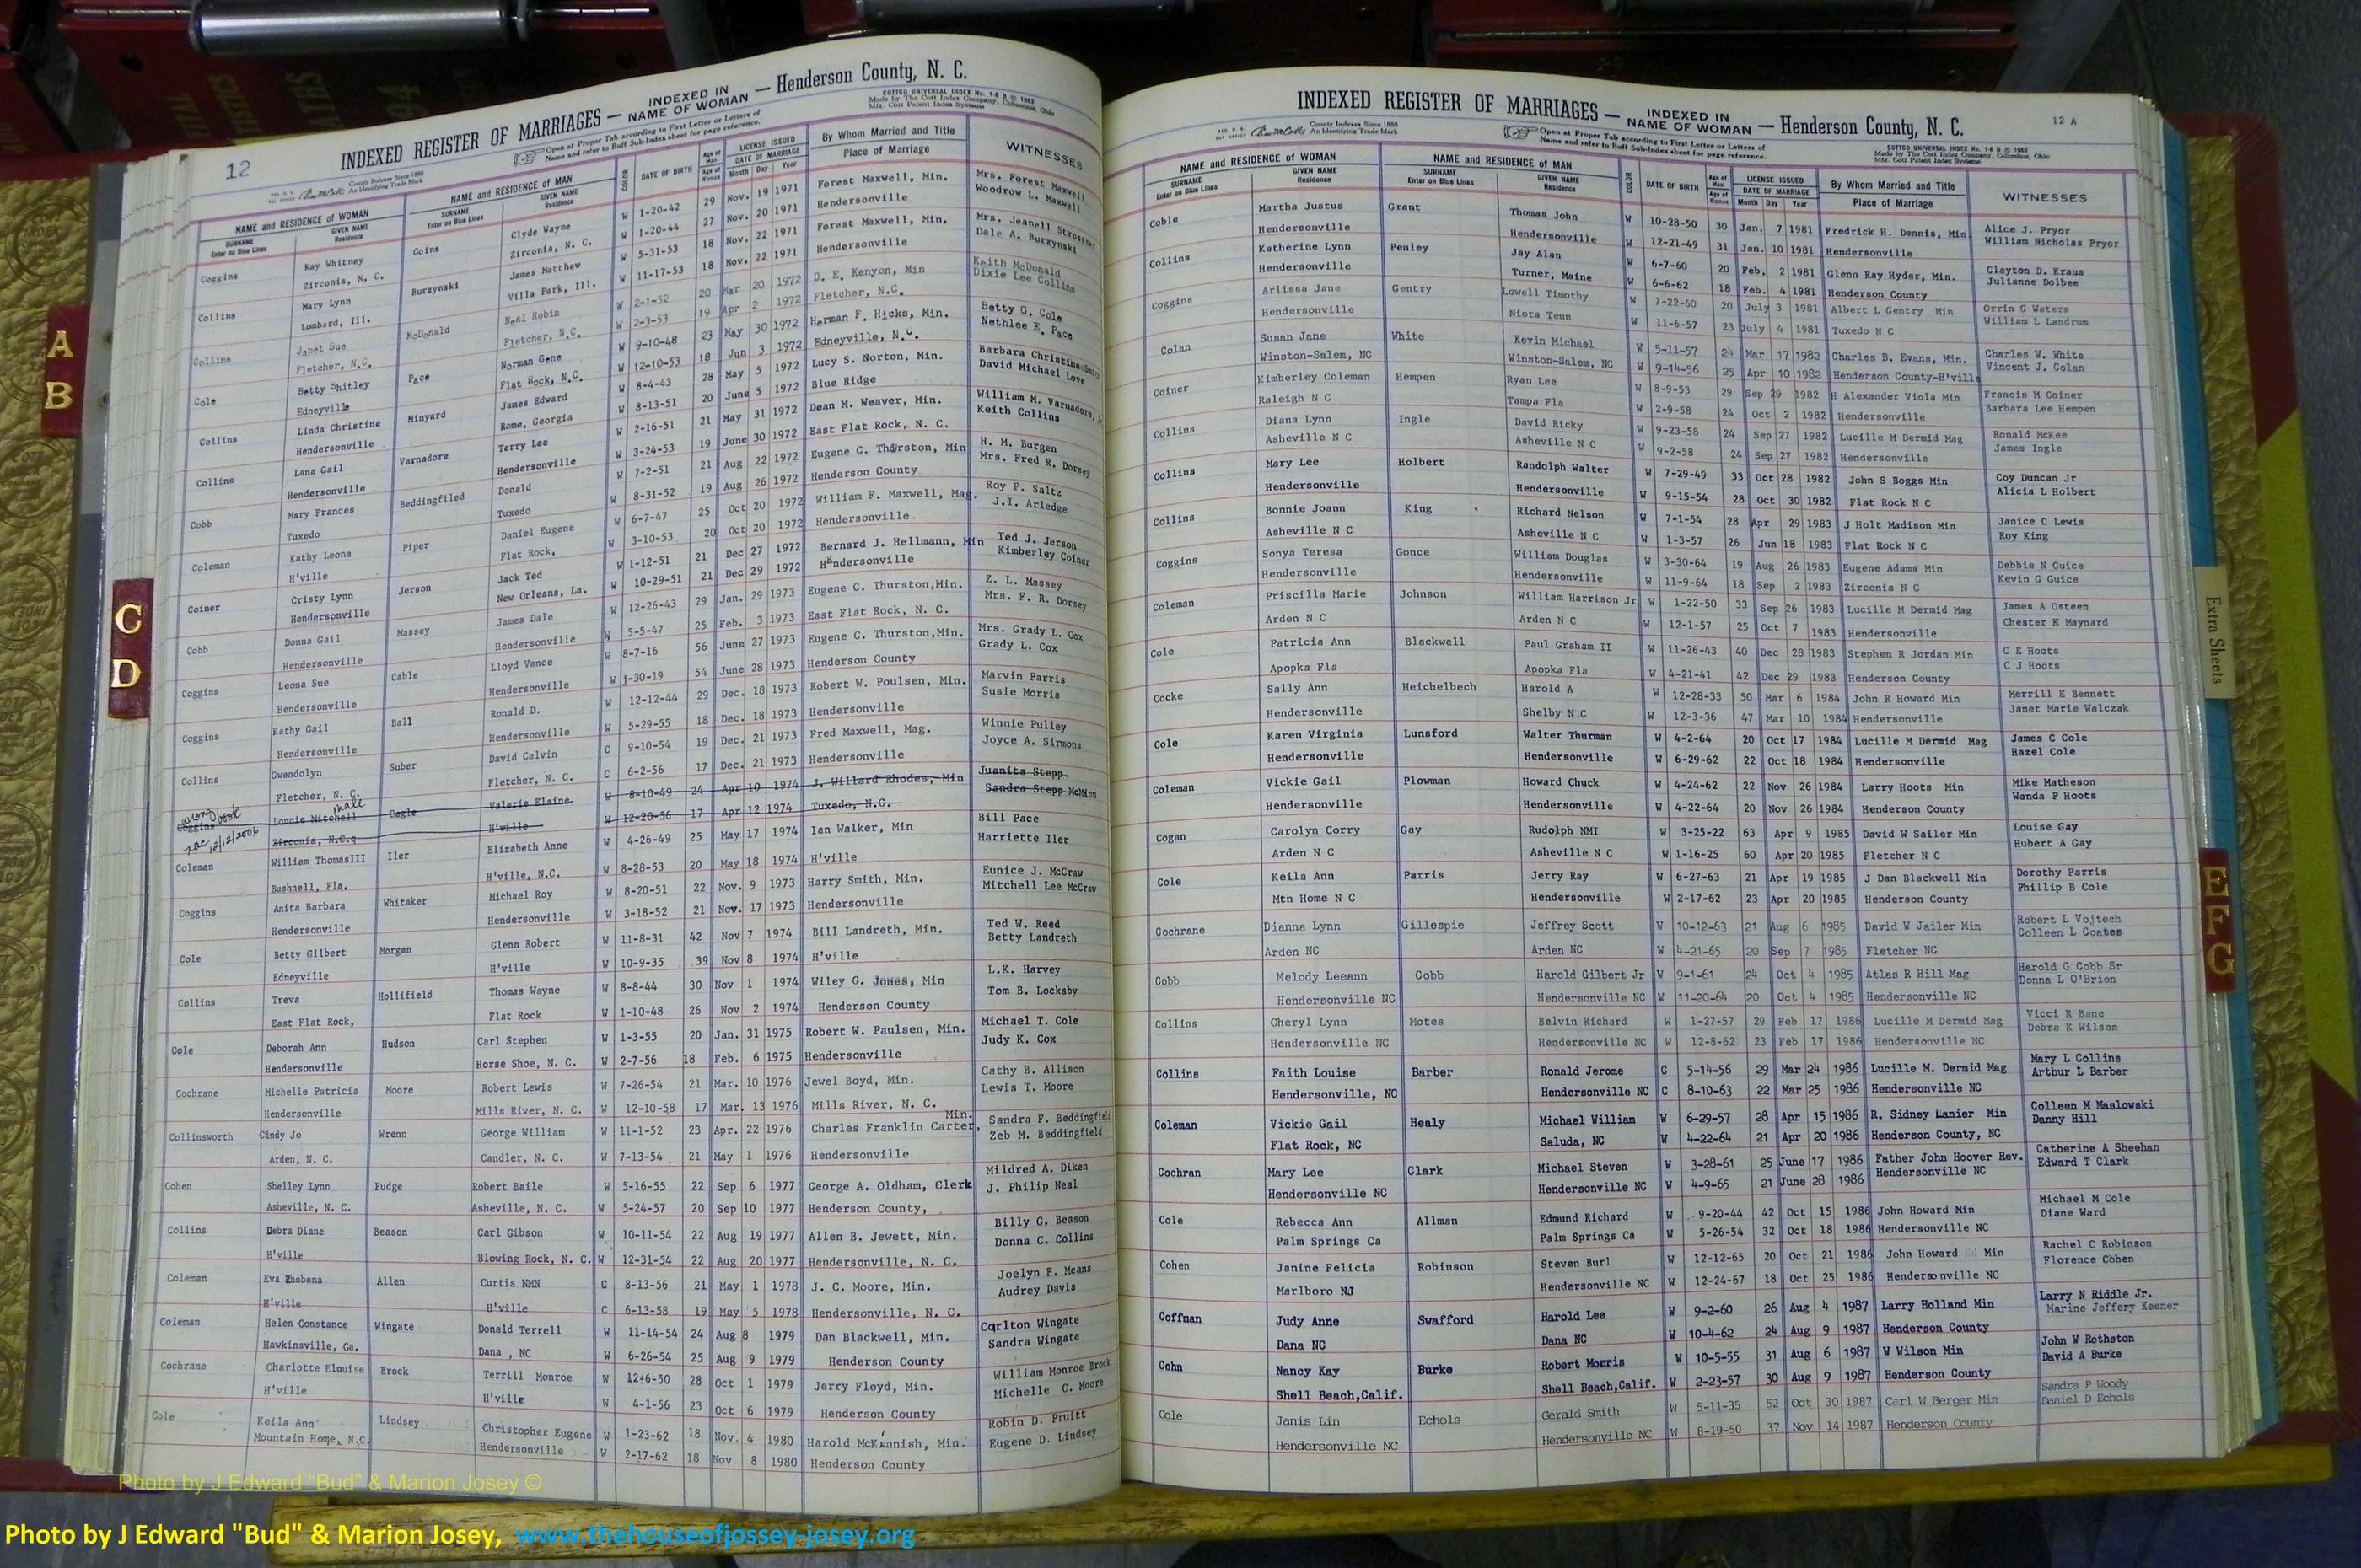 12
INDEXED REGISTER OF MARRIAGES — INDEXED IN NAME OF WOMAN — Henderson County, N. C.
Open at Proper Tab according to First Letter or Letters of Name and refer to Buff Sub-Index sheet for page reference.
COTTCO UNIVERSAL INDEX No. 1-8 B © 1962
Made by The Cott Index Company, Columbus, Ohio
Mfg. Cott Patent Index Systems
County Indexes Since 1888
An Identifying Trade Mark
NAME and RESIDENCE OF WOMAN NAME and RESIDENCE OF MAN COLOR DATE OF BIRTH Age of Man LICENSE ISSUED By Whom Married and Title WITNESSES
SURNAME GIVEN NAME SURNAME GIVEN NAME Age of Woman DATE OF MARRIAGE Place of Marriage
Enter on Blue Lines Residence Enter on Blue Lines Residence Month Day Year
Coggins Kay Whitney Goins Clyde Wayne W 1-20-42 29 Nov. 19 1971 Forest Maxwell, Min. Mrs. Forest Maxwell
Zirconia, N. C. Zirconia, N. C. W 1-20-44 27 Nov. 20 1971 Hendersonville Woodrow L. Maxwell
Collins Mary Lynn Burzynski James Matthew W 5-31-53 18 Nov. 22 1971 Forest Maxwell, Min. Mrs. Jeanell Strossner
Lombard, Ill. Villa Park, Ill. W 11-17-53 18 Nov. 22 1971 Hendersonville Dale A. Burzynski
Collins Janet Sue McDonald Neal Robin W 2-1-52 20 Mar 20 1972 D. E. Kenyon, Min Keith McDonald
Fletcher, N.C. Fletcher, N.C. W 2-3-53 19 Apr 2 1972 Fletcher, N.C. Dixie Lee Collins
Cole Betty Shitley Pace Norman Gene W 9-10-48 23 May 30 1972 Herman F. Hicks, Min. Betty G. Cole
Edneyville Flat Rock, N.C. W 12-10-53 18 Jun 3 1972 Edneyville, N.C. Nethlee E. Pace
Collins Linda Christine Minyard James Edward W 8-4-43 28 May 5 1972 Lucy S. Norton, Min. Barbara Christine Smith
Hendersonville Rome, Georgia W 8-13-51 20 June 5 1972 Blue Ridge David Michael Love
Collins Lana Gail Varnadore Terry Lee W 2-16-51 21 May 31 1972 Dean M. Weaver, Min. William M. Varnadore,
Hendersonville Hendersonville W 3-24-53 19 June 30 1972 East Flat Rock, N. C. Keith Collins
Cobb Mary Frances Beddingfiled Donald W 7-2-51 21 Aug 22 1972 Eugene C. Thurston, Min H. M. Burgen
Tuxedo Tuxedo W 8-31-52 19 Aug 26 1972 Henderson County Mrs. Fred R. Dorsey
Coleman Kathy Leona Piper Daniel Eugene W 6-7-47 25 Oct 20 1972 William F. Maxwell, Mag. Roy F. Saltz
H'ville Flat Rock, W 3-10-53 20 Oct 20 1972 Hendersonville J.I. Arledge
Coiner Cristy Lynn Jerson Jack Ted W 1-12-51 21 Dec 27 1972 Bernard J. Hellmann, Min Ted J. Jerson
Hendersonville New Orleans, La. W 10-29-51 21 Dec 29 1972 Hendersonville Kimberley Coiner
Cobb Donna Gail Massey James Dale W 12-26-43 29 Jan. 29 1973 Eugene C. Thurston,Min. Z. L. Massey
Hendersonville Hendersonville W 5-5-47 25 Feb. 3 1973 East Flat Rock, N. C. Mrs. F. R. Dorsey
Coggins Leona Sue Cable Lloyd Vance W 8-7-16 56 June 27 1973 Eugene C. Thurston,Min. Mrs. Grady L. Cox
Hendersonville Hendersonville W 1-30-19 54 June 28 1973 Henderson County Grady L. Cox
Coggins Kathy Gail Ball Ronald D. W 12-12-44 29 Dec. 18 1973 Robert W. Poulsen, Min. Marvin Parris
Hendersonville Hendersonville W 5-29-55 18 Dec. 18 1973 Hendersonville Susie Morris
Collins Gwendolyn Suber David Calvin C 9-10-54 19 Dec. 21 1973 Fred Maxwell, Mag. Winnie Pulley
Fletcher, N. C. Fletcher, N. C. C 6-2-56 17 Dec. 21 1973 Hendersonville Joyce A. Sirmons
wrong book male
Coggins Lonnie Mitchell Cagle Valerie Elaine W 8-10-49 24 Apr 10 1974 J. Willard Rhodes, Min Juanita Stepp
Zirconia, N.C. H'ville W 12-20-56 17 Apr 12 1974 Tuxedo, N.C. Sandra Stepp McMinn
12/12/2006
Coleman William ThomasIII Iler Elizabeth Anne W 4-26-49 25 May 17 1974 Ian Walker, Min Bill Pace
Bushnell, Fla. H'ville, N.C. W 8-28-53 20 May 18 1974 H'ville Harriette Iler
Coggins Anita Barbara Whitaker Michael Roy W 8-20-51 22 Nov. 9 1973 Harry Smith, Min. Eunice J. McCraw
Hendersonville Hendersonville W 3-18-52 21 Nov. 17 1973 Hendersonville Mitchell Lee McCraw
Cole Betty Gilbert Morgan Glenn Robert W 11-8-31 42 Nov 7 1974 Bill Landreth, Min. Ted W. Reed
Edneyville H'ville W 10-9-35 39 Nov 8 1974 H'ville Betty Landreth
Collins Treva Hollifield Thomas Wayne W 8-8-44 30 Nov 1 1974 Wiley G. Jones, Min L.K. Harvey
East Flat Rock, Flat Rock W 1-10-48 26 Nov 2 1974 Henderson County Tom B. Lockaby
Cole Deborah Ann Hudson Carl Stephen W 1-3-55 20 Jan. 31 1975 Robert W. Paulsen, Min. Michael T. Cole
Hendersonville Horse Shoe, N. C. W 2-7-56 18 Feb. 6 1975 Hendersonville Judy K. Cox
Cochrane Michelle Patricia Moore Robert Lewis W 7-26-54 21 Mar. 10 1976 Jewel Boyd, Min. Cathy B. Allison
Hendersonville Mills River, N. C. W 12-10-58 17 Mar. 13 1976 Mills River, N. C. Lewis T. Moore
Collinsworth Cindy Jo Wrenn George William W 11-1-52 23 Apr. 22 1976 Charles Franklin Carter, Min. Sandra F. Beddingfield
Arden, N. C. Candler, N. C. W 7-13-54 21 May 1 1976 Hendersonville Zeb M. Beddingfield
Cohen Shelley Lynn Fudge Robert Baile W 5-16-55 22 Sep 6 1977 George A. Oldham, Clerk Mildred A. Diken
Asheville, N. C. Asheville, N. C. W 5-24-57 20 Sep 10 1977 Henderson County, J. Philip Neal
Collins Debra Diane Beason Carl Gibson W 10-11-54 22 Aug 19 1977 Allen B. Jewett, Min. Billy G. Beason
H'ville Blowing Rock, N. C. W 12-31-54 22 Aug 20 1977 Hendersonville, N. C. Donna C. Collins
Coleman Eva Ehobena Allen Curtis NMN C 8-13-56 21 May 1 1978 J. C. Moore, Min. Joelyn F. Means
H'ville H'ville C 6-13-58 19 May 5 1978 Hendersonville, N. C. Audrey Davis
Coleman Helen Constance Wingate Donald Terrell W 11-14-54 24 Aug 8 1979 Dan Blackwell, Min. Cqrlton Wingate
Hawkinsville, Ga. Dana , NC W 6-26-54 25 Aug 9 1979 Henderson County Sandra Wingate
Cochrane Charlotte Elouise Brock Terrill Monroe W 12-6-50 28 Oct 1 1979 Jerry Floyd, Min. William Monroe Brock
H'ville H'ville W 4-1-56 23 Oct 6 1979 Henderson County Michelle C. Moore
Cole Keila Ann Lindsey Christopher Eugene W 1-23-62 18 Nov. 4 1980 Harold McKinnish, Min. Robin D. Pruitt
Mountain Home, N.C. Hendersonville W 2-17-62 18 Nov 8 1980 Henderson County Eugene D. Lindsey
12 A
INDEXED REGISTER OF MARRIAGES — INDEXED IN NAME OF WOMAN — Henderson County, N. C.
County Indexes Since 1888
An Identifying Trade Mark
Open at Proper Tab according to First Letter or Letters of Name and refer to Buff Sub-Index sheet for page reference.
COTTCO UNIVERSAL INDEX No. 1-8 B © 1962
Made by The Cott Index Company, Columbus, Ohio
Mfg. Cott Patent Index Systems
NAME and RESIDENCE OF WOMAN NAME and RESIDENCE OF MAN COLOR DATE OF BIRTH Age of Man LICENSE ISSUED By Whom Married and Title WITNESSES
SURNAME GIVEN NAME SURNAME GIVEN NAME Age of Woman DATE OF MARRIAGE Place of Marriage
Enter on Blue Lines Residence Enter on Blue Lines Residence Month Day Year
Coble Martha Justus Grant Thomas John W 10-28-50 30 Jan. 7 1981 Fredrick H. Dennis, Min Alice J. Pryor
Hendersonville Hendersonville W 12-21-49 31 Jan. 10 1981 Hendersonville William Nicholas Pryor
Collins Katherine Lynn Penley Jay Alan W 6-7-60 20 Feb. 2 1981 Glenn Ray Hyder, Min. Clayton D. Kraus
Hendersonville Turner, Maine W 6-6-62 18 Feb. 4 1981 Henderson County Julianne Dolbee
Coggins Arlissa Jane Gentry Lowell Timothy W 7-22-60 20 July 3 1981 Albert L Gentry Min Orrin G Waters
Hendersonville Niota Tenn W 11-6-57 23 July 4 1981 Tuxedo N C William L Landrum
Colan Susan Jane White Kevin Michael W 5-11-57 24 Mar 17 1982 Charles B. Evans, Min. Charles W. White
Winston-Salem, NC Winston-Salem, NC W 9-14-56 25 Apr 10 1982 Henderson County-H'ville Vincent J. Colan
Coiner Kimberley Coleman Hempen Ryan Lee W 8-9-53 29 Sep 29 1982 H Alexander Viola Min Francis M Coiner
Raleigh N C Tampa Fla W 2-9-58 24 Oct 2 1982 Hendersonville Barbara Lee Hempen
Collins Diana Lynn Ingle David Ricky W 9-23-58 24 Sep 27 1982 Lucille M Dermid Mag Ronald McKee
Asheville N C Asheville N C W 9-2-58 24 Sep 27 1982 Hendersonville James Ingle
Collins Mary Lee Holbert Randolph Walter W 7-29-49 33 Oct 28 1982 John S Boggs Min Coy Duncan Jr
Hendersonville Hendersonville W 9-15-54 28 Oct 30 1982 Flat Rock N C Alicia L Holbert
Collins Bonnie Joann King Richard Nelson W 7-1-54 28 Apr 29 1983 J Holt Madison Min Janice C Lewis
Asheville N C Asheville N C W 1-3-57 26 Jun 18 1983 Flat Rock N C Roy King
Coggins Sonya Teresa Gonce William Douglas W 3-30-64 19 Aug 26 1983 Eugene Adams Min Debbie N Guice
Hendersonville Hendersonville W 11-9-64 18 Sep 2 1983 Zirconia N C Kevin G Guice
Coleman Priscilla Marie Johnson William Harrison Jr W 1-22-50 33 Sep 26 1983 Lucille M Dermid Mag James A Osteen
Arden N C Arden N C W 12-1-57 25 Oct 7 1983 Hendersonville Chester K Maynard
Cole Patricia Ann Blackwell Paul Graham II W 11-26-43 40 Dec 28 1983 Stephen R Jordan Min C E Hoots
Apopka Fla Apopka Fla W 4-21-41 42 Dec 29 1983 Henderson County C J Hoots
Cocke Sally Ann Heichelbech Harold A W 12-28-33 50 Mar 6 1984 John R Howard Min Merrill E Bennett
Hendersonville Shelby N C W 12-3-36 47 Mar 10 1984 Hendersonville Janet Marie Walczak
Cole Karen Virginia Lunsford Walter Thurman W 4-2-64 20 Oct 17 1984 Lucille M Dermid Mag James C Cole
Hendersonville Hendersonville W 6-29-62 22 Oct 18 1984 Hendersonville Hazel Cole
Coleman Vickie Gail Plowman Howard Chuck W 4-24-62 22 Nov 26 1984 Larry Hoots Min Mike Matheson
Hendersonville Hendersonville W 4-22-64 20 Nov 26 1984 Henderson County Wanda P Hoots
Cogan Carolyn Corry Gay Rudolph NMI W 3-25-22 63 Apr 9 1985 David W Sailer Min Louise Gay
Arden N C Asheville N C W 1-16-25 60 Apr 20 1985 Fletcher N C Hubert A Gay
Cole Keila Ann Parris Jerry Ray W 6-27-63 21 Apr 19 1985 J Dan Blackwell Min Dorothy Parris
Mtn Home N C Hendersonville W 2-17-62 23 Apr 20 1985 Henderson County Phillip B Cole
Cochrane Dianna Lynn Gillespie Jeffrey Scott W 10-12-63 21 Aug 6 1985 David W Jailer Min Robert L Vojtech
Arden NC Arden NC W 4-21-65 20 Sep 7 1985 Fletcher NC Colleen L Coates
Cobb Melody Leeann Cobb Harold Gilbert Jr W 9-1-61 24 Oct 4 1985 Atlas R Hill Mag Harold G Cobb Sr
Hendersonville NC Hendersonville NC W 11-20-64 20 Oct 4 1985 Hendersonville NC Donna L O'Brien
Collins Cheryl Lynn Motes Belvin Richard W 1-27-57 29 Feb 17 1986 Lucille M Dermid Mag Vicci R Bane
Hendersonville NC Hendersonville NC W 12-8-62 23 Feb 17 1986 Hendersonville NC Debra K Wilson
Collins Faith Louise Barber Ronald Jerome C 5-14-56 29 Mar 24 1986 Lucille M. Dermid Mag Mary L Collins
Hendersonville, NC Hendersonville NC C 8-10-63 22 Mar 25 1986 Hendersonville NC Arthur L Barber
Coleman Vickie Gail Healy Michael William W 6-29-57 28 Apr 15 1986 R. Sidney Lanier Min Colleen M Maslowski
Flat Rock, NC Saluda, NC W 4-22-64 21 Apr 20 1986 Henderson County, NC Danny Hill
Cochran Mary Lee Clark Michael Steven W 3-28-61 25 June 17 1986 Father John Hoover Rev. Catherine A Sheehan
Hendersonville NC Hendersonville NC W 4-9-65 21 June 28 1986 Hendersonville NC Edward T Clark
Cole Rebecca Ann Allman Edmund Richard W 9-20-44 42 Oct 15 1986 John Howard Min Michael M Cole
Palm Springs Ca Palm Springs Ca W 5-26-54 32 Oct 18 1986 Hendersonville NC Diane Ward
Cohen Janine Felicia Robinson Steven Burl W 12-12-65 20 Oct 21 1986 John Howard Min Rachel C Robinson
Marlboro NJ Hendersonville NC W 12-24-67 18 Oct 25 1986 Hendersonville NC Florence Cohen
Coffman Judy Anne Swafford Harold Lee W 9-2-60 26 Aug 4 1987 Larry Holland Min Larry N Riddle Jr.
Dana NC Dana NC W 10-4-62 24 Aug 9 1987 Henderson County Marine Jeffery Keener
Cohn Nancy Kay Burke Robert Morris W 10-5-55 31 Aug 6 1987 W Wilson Min John W Rothston
Shell Beach,Calif. Shell Beach,Calif. W 2-23-57 30 Aug 9 1987 Henderson County David A Burke
Cole Janis Lin Echols Gerald Smith W 5-11-35 52 Oct 30 1987 Carl W Berger Min Sandra P Woody
Hendersonville NC Hendersonville NC W 8-19-50 37 Nov 14 1987 Henderson County Daniel D Echols
A
B
C
D
Extra Sheets
E
F
G
Photo by J Edward "Bud" & Marion Josey ©
Photo by J Edward "Bud" & Marion Josey, www.thehouseofjossey-josey.org